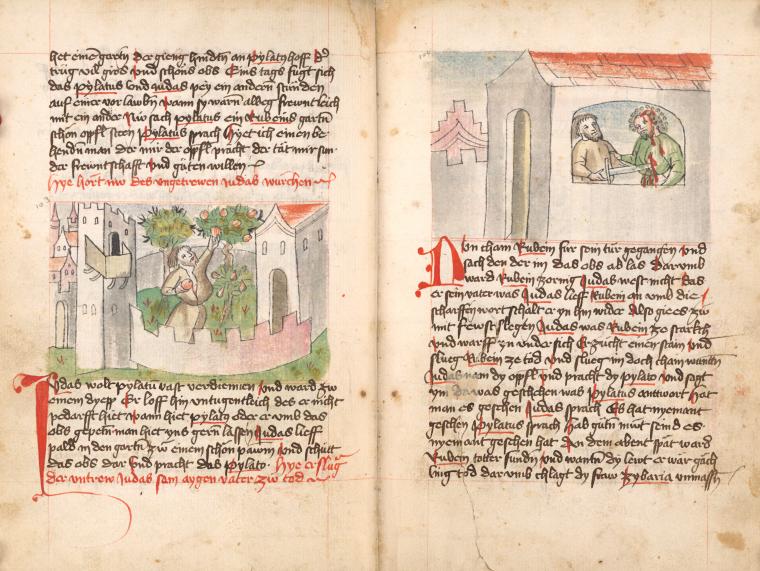 het eine garttn der gieng hindtn an pylaty hoff d'
trug vil gros vnd schons obs Eins tags fugt sich
das pylatus vnd iudas pey ein andern stunden
auf einer vor lawbn wann sy warn albeg frewntleich
mit ein ander Nw sach pylatus ein Rubenis gartn
schon opfl sten Pylatus sprach hyet ich einen be
hendn man der mir der opfl pracht der tat mir sun
der frewntschafft vnd guten willen
hye hort nw des vngetrewen iudas wurchen
Judas wolt pylatu vast verdiennen vnd ward zw
einem dyep Er loff hin vntugentleich des er nicht
pedarfft hiet wann hiet pylato oder er vmb das
obs gepetn man hiet yns gern lassen Judas lieff
pald in den gartn zw einem schon pawm vnd schutt
das obs dor vnd pracht das pylato hye erslug
der vntrew iudas sein aygen vater zw tod
Nvn cham Rubein fur sein tur gegangen vnd
sach den der im das obs ab las Darvmb
ward Rubein zornig Judas west nicht das
er sein vater was Judas lieff Rubein an vmb die
scharffen wort schalt er yn hin wider Also gie es zw
mit fewstslegen Judas was Rubein ze starkch
vnd warff zw vnder sich Er zucht einen stain vnd
slueg Rubein ze tod vnd slueg in doch cham wanttn
Judas nam dy opfl vnd pracht dy pylato vnd sagt
ym was geschehen was Pylatus antwort hat
man es gesehen Judas sprach Es hat nyemant
gesehen Pylatus sprach hab gutn mut seind es
nyemant gesehen hat An dem abent spat ward
Rubein totter fundn vnd wantn dy lewt er war gach
ling tod dar vmb chlagt dy fraw zybaria vnmassn